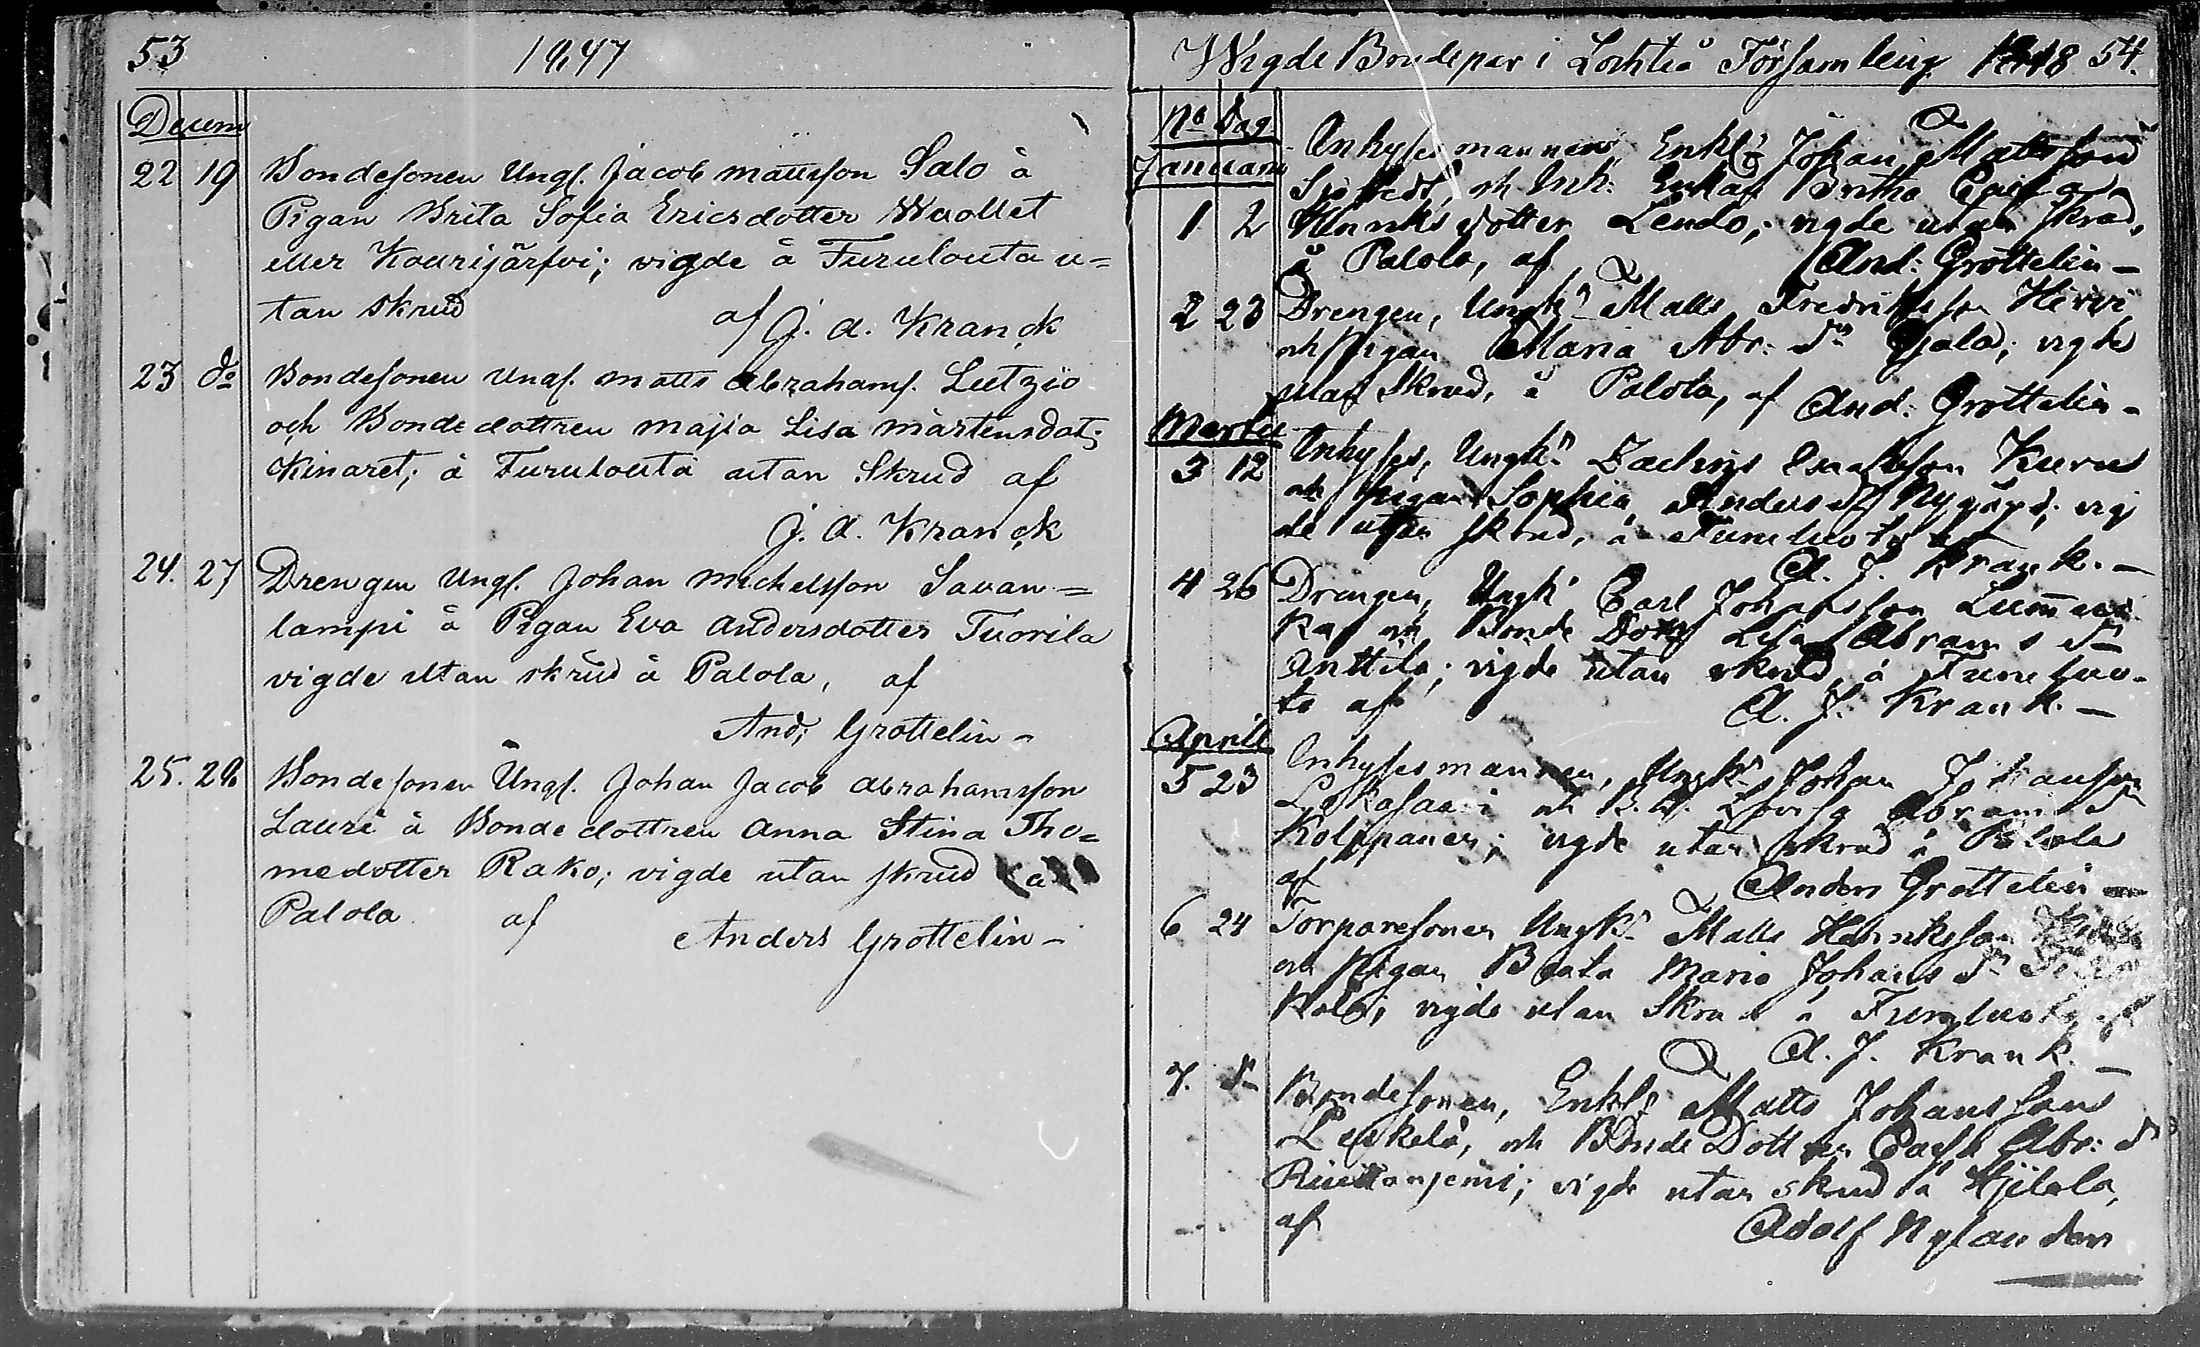 53 1847
Decem
22 19 Bondesonen Ungl. Jacob mattsson Salo å
Pigan Brita Sofia Ericsdotter Wuollet
eller Kaurijärfvi; vigde å Furulouta u=
tan skrud af J. A. Kranck
23 do Bondesonen Ungl. matts Abrahams. Lutzio
och Bondedottren majia Lisa mårtensdot;
Kinaret; å Furulouta utan Skrud af
J. A. Kranck
24. 27 Drengen Ungl. Johan michelsson Savan=
lampi å Pigan Eva Andersdotter Tuorila
vigde utan skrud å Palola, af
And; Grottelin -
25. 28 Bondesonen Ungl. Johan Jacob Abrahamsson
Lauri å Bondedottren Anna Stina Tho=
medotter Rako; vigde utan skrud å
Palola af
Anders Grottelin -
Wigde Brudepar i Lochteå Församling 1848 54.
No Dag
Januarii
Inhysesmannen, Enkl. Johan Mattsson
och Inh: Enkan Britha Caisa
1 2 Henriksdotter Lendo; vigde utan skrud,
å Palola, af And: Grottelin -
2 23 Drengen, Ungk. Matts Fredriksson Hirvi
och Pigan Maria Abr: dr vigde
utan Skrud, å Palola, af And: Grottelin -
Martii
3 12 Inhyses, Ungk. Zachris Kurus
och pigan Sophia Anders dr Nygård; vig
de utan skrud, å Furuluoto af
A. J. Krank. -
4 26 Drengen, Ungk. Carl Johansson
ka och Bonde Dott Lisa Abrams dr
Anttila; vigde utan skrud, å Furuluo-
to af A. J. Krank. -
Aprill
5 23 Inhysesmannen, Ungk. Johan Johansson
och B.d. Lovisa Abrams dr
Kolppanen; vigde utan skrud å Palola
af Anders Grottelin
6 24 Torparesonen Ungk. Matts Henriksson
och Pigan Beata Maria Johans dr
vigde utan Skrud å Furuluoto af
A. J. Krank. -
7. d- Bondesonen, Enkl. Matts Johansson
Leskelä, och Bonde Dottren Caisa Abr: dr
vigde utan skrud å Hjelala,
af Adolf Nylander